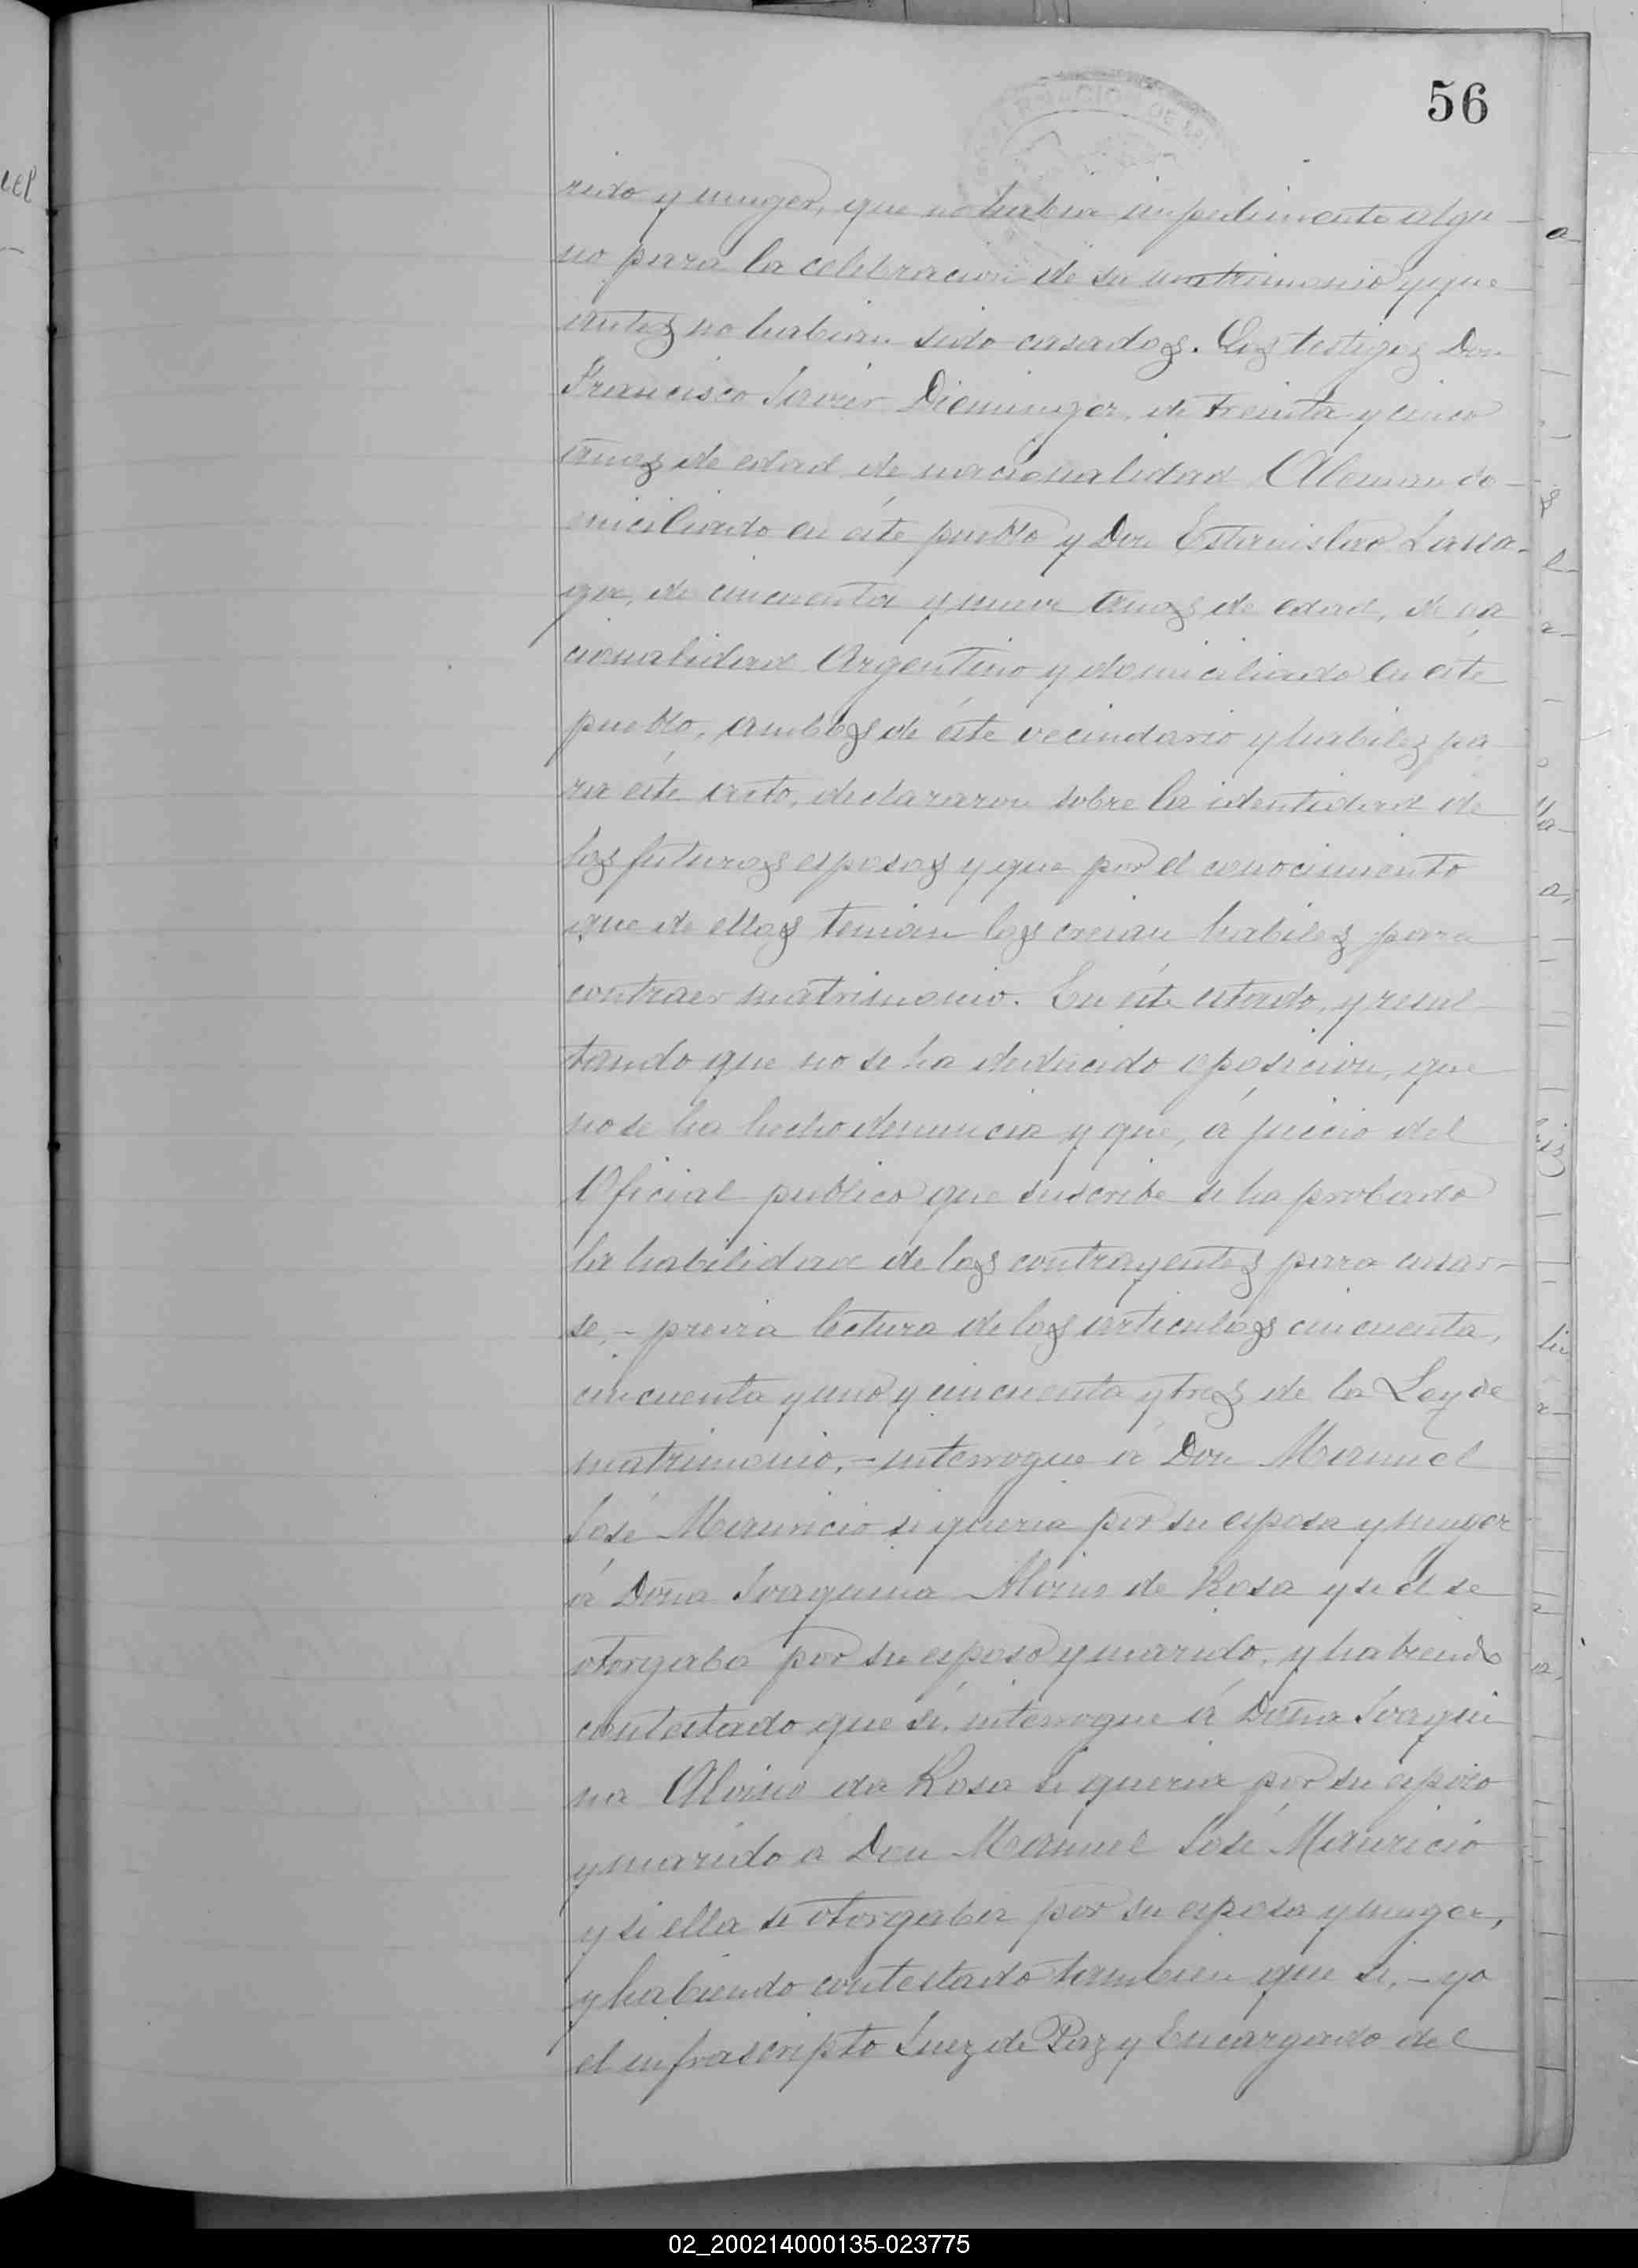 56
rido y muger, que no habia impedimento algu-
no para la celebracion de su matrimonio y que
antes no habian sido casados. Los testigos Don
Francisco Javier Dieminger, de treinta y cinco
años de edad de nacionalidad Aleman do-
miciliado en éste pueblo y Don Estanislao
de cincuenta y nueve años de edad, de na
cionalidad Argentino y domiciliado en éste
pueblo, ambos de éste vecindario y habiles pa
ra éste acto, declararon sobre la identidad de
los futuros esposos y que por el conocimiento
que de ellos tenian los creian habiles para
contraer matrimonio. En éste estado, y resul-
tando que no se ha deducido oposicion, que
no se ha hecho denuncia y que, á juicio del
Oficial publico que suscribe se ha probado
la habilidad de los contrayentes para casar-
se,- previa lectura de los articulos cincuenta,
cincuenta y uno y cincuenta y tres de la Ley de
matrimonio,- interrogue á Don Manuel
José Mauricio si queria por su esposa y muger
á Doña Joaquina Alvino de Rosa y si el se
otorgaba por su esposo y marido, y habiendo
contestado que sí, interrogue á Doña Joaqui
na Alvino da Rosa si queria por su esposo
y marido a Don Manuel José Mauricio
y si ella se otorgaba por su esposa y muger,
y habiendo contestado tambien que si,- yo
el infrascripto Juez de Paz y Encargado del
02_200214000135-023775